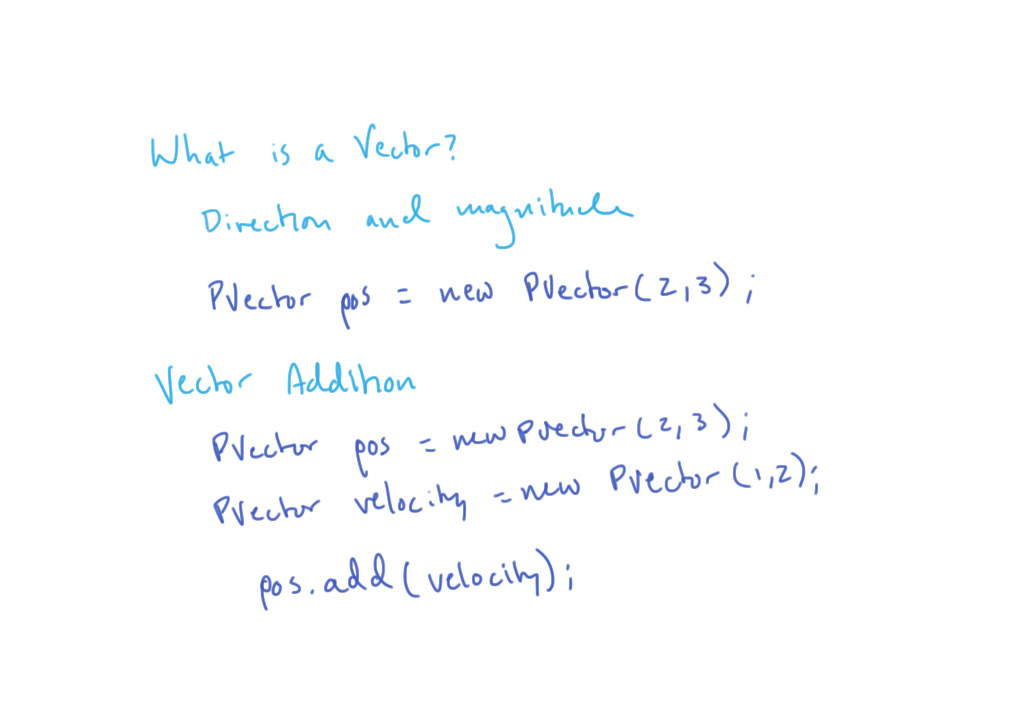 What is a Vector?
Direction and magnitude
PVector pos = new PVector(2,3);
Vector Addition
PVector pos = new PVector(2,3);
PVector velocity = new PVector(1,2);
pos.add(velocity);